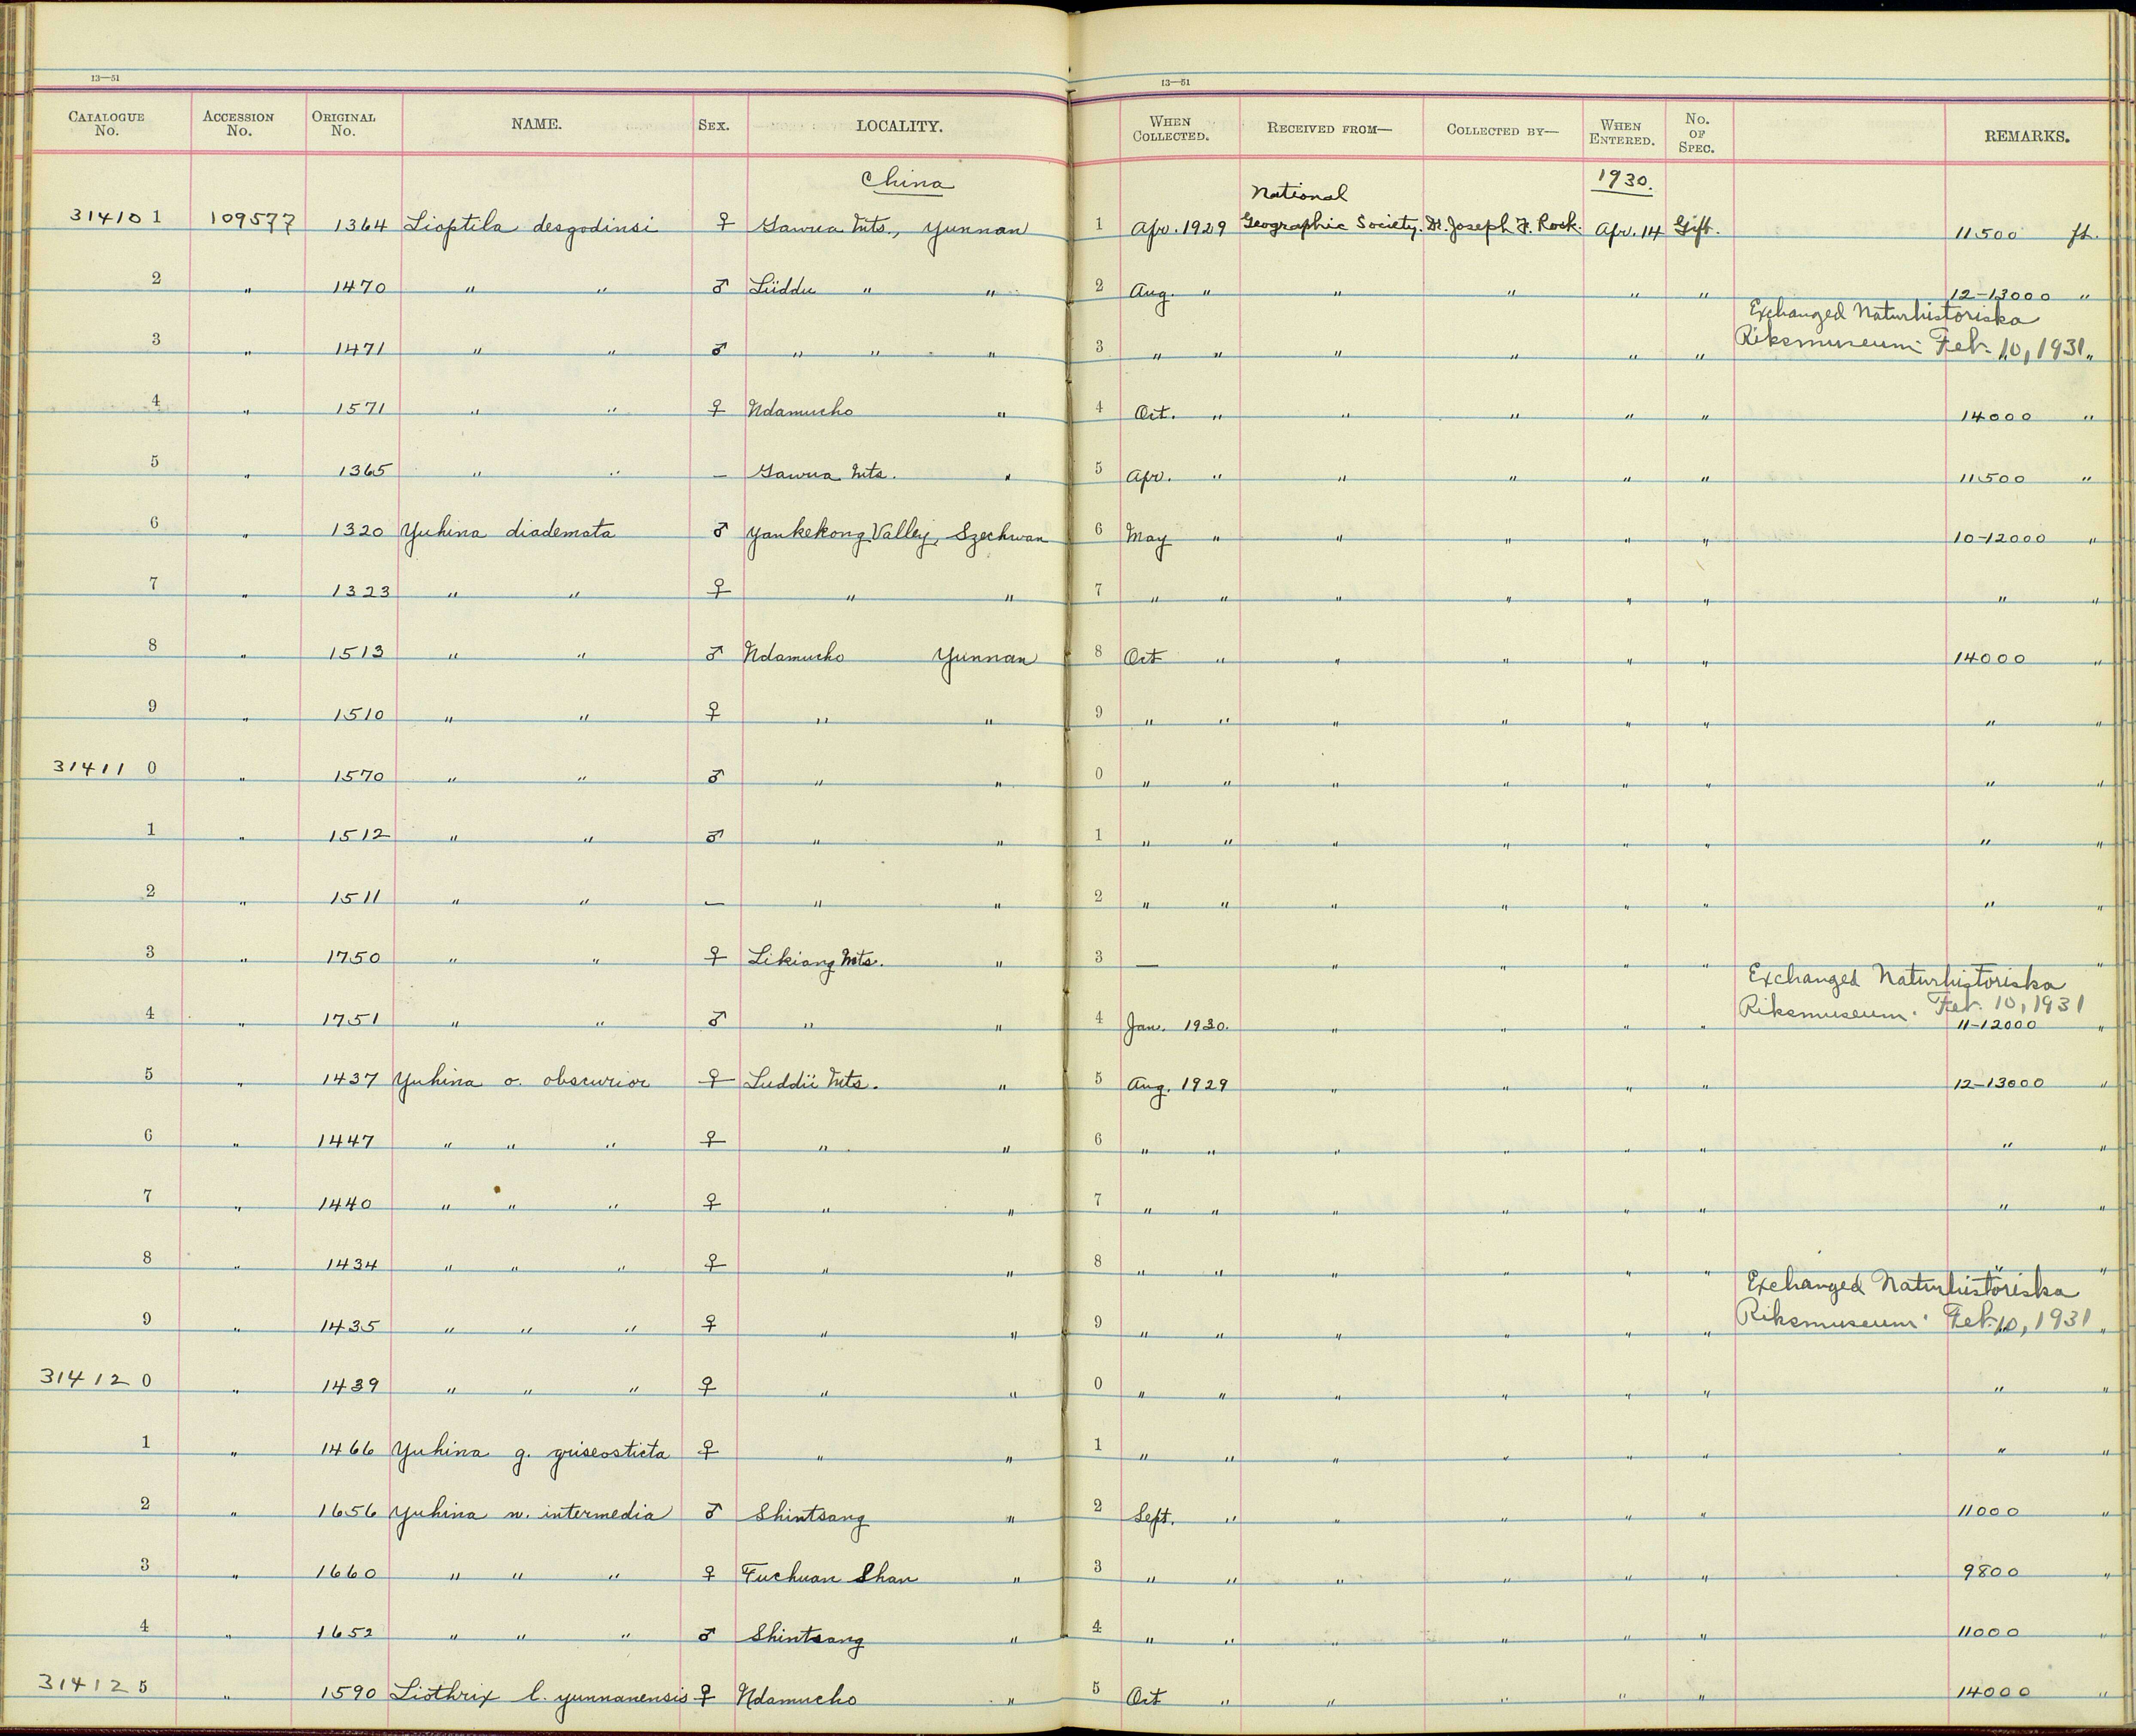 13—51 13—51
CATALOGUE No. ACCESSION No. ORIGINAL No. NAME. SEX. LOCALITY. WHEN COLLECTED. RECEIVED FROM— COLLECTED BY— WHEN ENTERED. No. OF SPEC. REMARKS.
China 1930.
314101 109577 1364 Lioptila desgodinsi ♀ Gawra Mts., Yunnan 1 Apr. 1929 National Geographic Society. Dr. Joseph F. Rock. Apr. 14 Gift. 11500 ft.
2 " 1470 " " ♂ Lüddu " " 2 Aug. " " " " " 12-13000 "
3 " 1471 " " ♂ " " " 3 " " " " " " Exchanged Naturhistoriska Riksmuseum Feb. 10, 1931 "
4 " 1571 " " ♀ Ndamucho " 4 Oct. " " " " " 14000 "
5 " 1365 " " — Gawra Mts. " 5 Apr. " " " " " 11500 "
6 " 1320 Yuhina diademata ♂ Yankekong Valley, Szechwan 6 May " " " " " 10-12000 "
7 " 1323 " " ♀ " " 7 " " " " " " " "
8 " 1513 " " ♂ Ndamucho Yunnan 8 Oct " " " " " 14000 "
9 " 1510 " " ♀ " " 9 " " " " " " " "
314110 " 1570 " " ♂ " " 0 " " " " " " " "
1 " 1512 " " ♂ " " 1 " " " " " " " "
2 " 1511 " " — " " 2 " " " " " " " "
3 " 1750 " " ♀ Likiang Mts. " 3 — " " " " "
4 " 1751 " " ♂ " " 4 Jan. 1930. " " " " Exchanged Naturhistoriska Riksmuseum. Feb. 10, 1931 11-12000 "
5 " 1437 Yuhina o. obscurior ♀ Luddü Mts. " 5 Aug. 1929 " " " " 12-13000 "
6 " 1447 " " " ♀ " " 6 " " " " " " " "
7 " 1440 " " " ♀ " " 7 " " " " " " " "
8 " 1434 " " " ♀ " " 8 " " " " " " " "
9 " 1435 " " " ♀ " " 9 " " " " " " Exchanged Naturhistoriska Riksmuseum. Feb. 10, 1931 "
314120 " 1439 " " " ♀ " " 0 " " " " " " " "
1 " 1466 Yuhina g. griseosticta ♀ " " 1 " " " " " " " "
2 " 1656 Yuhina n. intermedia ♂ Shintsang " 2 Sept. " " " " " 11000 "
3 " 1660 " " " ♀ Fuchuan Shan " 3 " " " " " " 9800 "
4 " 1652 " " " ♂ Shintsang " 4 " " " " " " 11000 "
314125 " 1590 Liothrix l. yunnanensis ♀ Ndamucho " 5 Oct " " " " " 14000 "